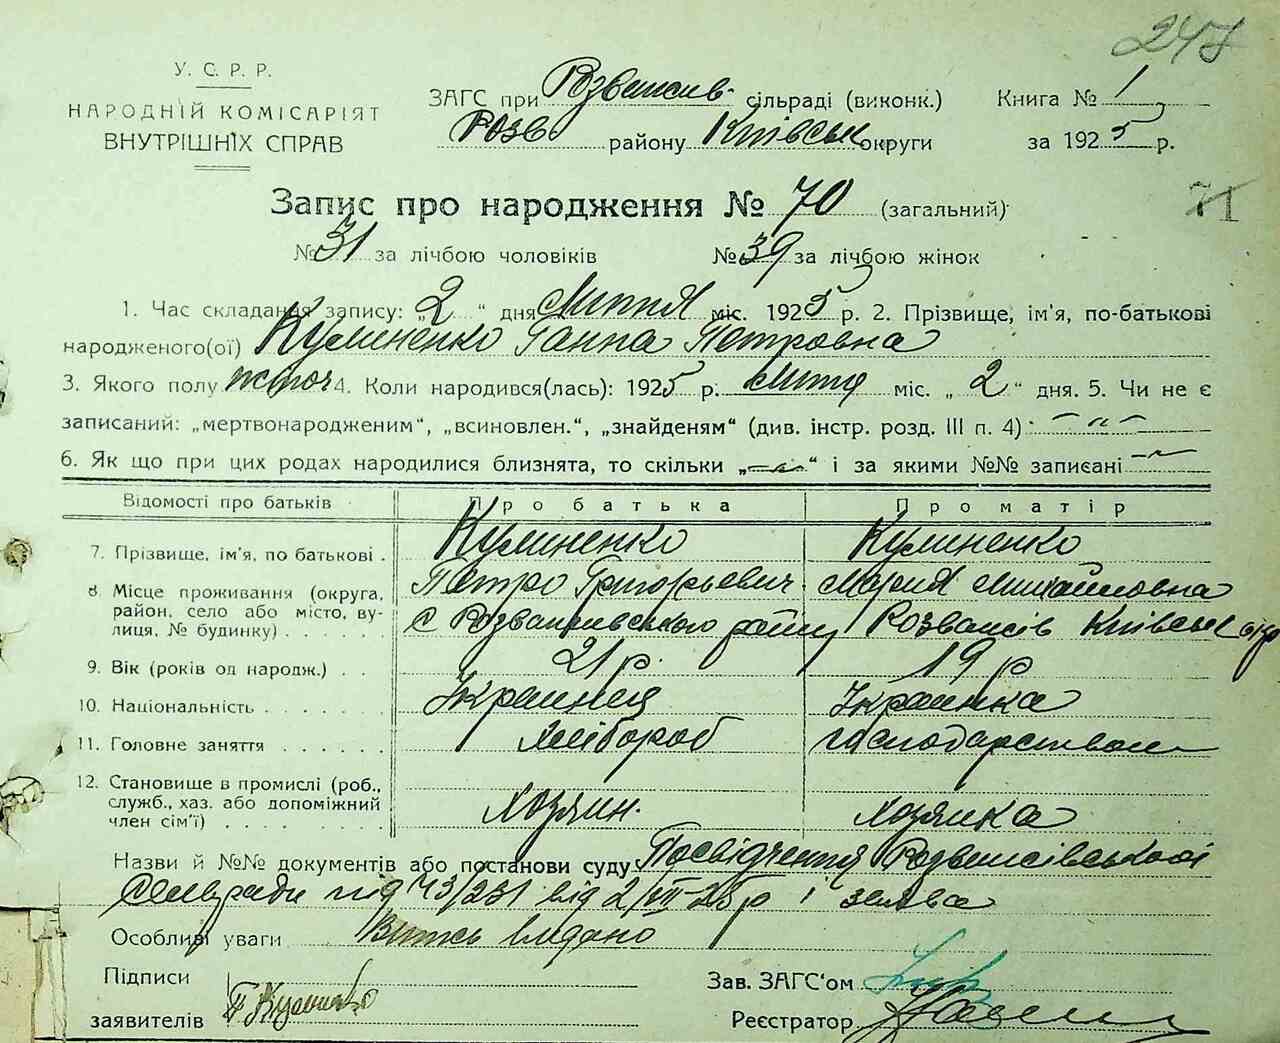 247
У. С. Р. Р.
НАРОДНІЙ КОМІСАРІЯТ
ВНУТРІШНІХ СПРАВ
ЗАГС при Розважив. сільраді (виконк.) Книга № 1
Розв району Київськ округи за 1925 р.
Запис про народження № 70 (загальний)
71
№ 31 за лічбою чоловіків № 39 за лічбою жінок
1. Час складання запису: „2“ дня Липня міс. 1925 р. 2. Прізвище, ім'я, по-батькові
народженого(ої) Кулиненко Ганна Петровна
3. Якого полу жіноч 4. Коли народився(лась): 1925 р. Липня міс. „2“ дня. 5. Чи не є
записаний: „мертвонародженим“, „всиновлен.“, „знайденям“ (див. інстр. розд. III п. 4)
6. Як що при цих родах народилися близнята, то скільки „—“ і за якими №№ записані
Відомості про батьків Про батька Про матір
7. Прізвище, ім'я, по батькові . Кулиненко Кулиненко
Петро Григорьевич Мария Михайловна
8. Місце проживання (округа, район, село або місто, вулиця, № будинку) . . . . . с Розважевського району Розважів Київськ окр
9. Вік (років од народж.) . . 21 р. 19 р
10. Національність . . . . . . Украинец Украинка
11. Головне заняття . . . . . . Хлібороб господарством
12. Становище в промислі (роб., служб., хаз. або допоміжний член сім'ї) . . . . . . Хозяин. хозяйка
Назви й №№ документів або постанови суду Посвідчення Розважівської
Сельради під 43/231 від 2/VII-25р і заява
Особливі уваги Витсь видано
Підписи
заявителів П Кулиненко
Зав. ЗАГС'ом
Реєстратор